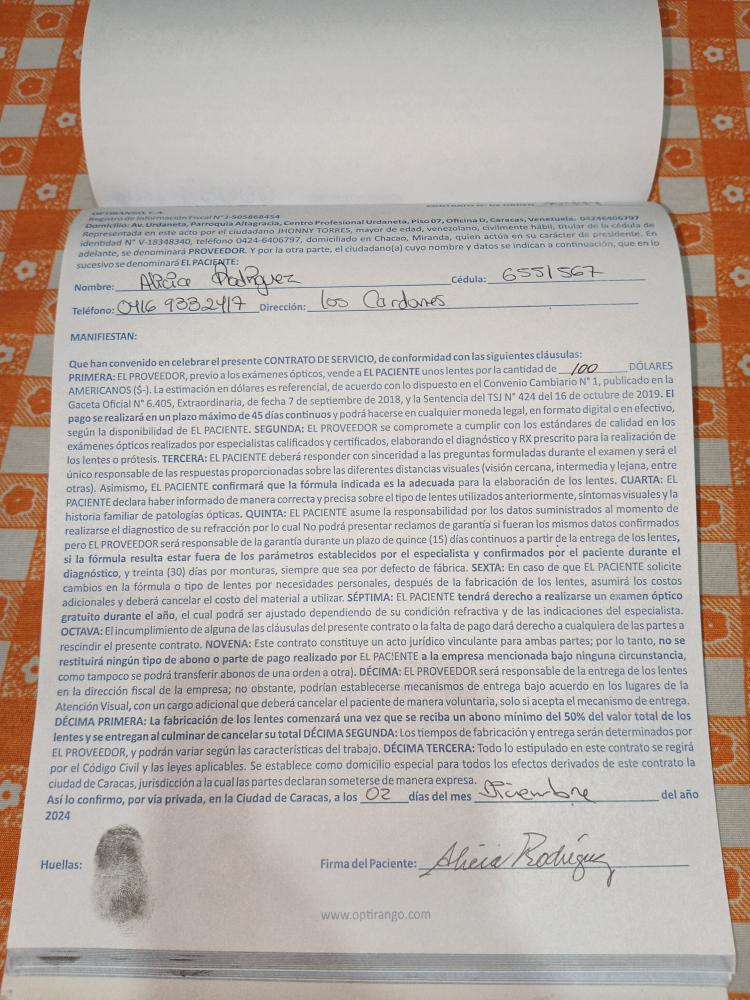 OPTIRANGO, C.A.
Registro de Información Fiscal N° J-505868454
Domicilio: Av. Urdaneta, Parroquia Altagracia, Centro Profesional Urdaneta, Piso 07, Oficina D, Caracas, Venezuela. 04246406797
Representada en este acto por el ciudadano JHONNY TORRES, mayor de edad, venezolano, civilmente hábil, titular de la cédula de
identidad N° V-18348340, teléfono 0424-6406797, domiciliado en Chacao, Miranda, quien actúa en su carácter de presidente. En
adelante, se denominará PROVEEDOR. Y por la otra parte, el ciudadano(a) cuyo nombre y datos se indican a continuación, que en lo
sucesivo se denominará EL PACIENTE:
Nombre: Alicia Rodríguez Cédula: 6551567
Teléfono: 0416 9332417 Dirección: Los Cardones
MANIFIESTAN:
Que han convenido en celebrar el presente CONTRATO DE SERVICIO, de conformidad con las siguientes cláusulas:
PRIMERA: EL PROVEEDOR, previo a los exámenes ópticos, vende a EL PACIENTE unos lentes por la cantidad de 100 DÓLARES
AMERICANOS ($-). La estimación en dólares es referencial, de acuerdo con lo dispuesto en el Convenio Cambiario N° 1, publicado en la
Gaceta Oficial N° 6.405, Extraordinaria, de fecha 7 de septiembre de 2018, y la Sentencia del TSJ N° 424 del 16 de octubre de 2019. El
pago se realizará en un plazo máximo de 45 días continuos y podrá hacerse en cualquier moneda legal, en formato digital o en efectivo,
según la disponibilidad de EL PACIENTE. SEGUNDA: EL PROVEEDOR se compromete a cumplir con los estándares de calidad en los
exámenes ópticos realizados por especialistas calificados y certificados, elaborando el diagnóstico y RX prescrito para la realización de
los lentes o prótesis. TERCERA: EL PACIENTE deberá responder con sinceridad a las preguntas formuladas durante el examen y será el
único responsable de las respuestas proporcionadas sobre las diferentes distancias visuales (visión cercana, intermedia y lejana, entre
otras). Asimismo, EL PACIENTE confirmará que la fórmula indicada es la adecuada para la elaboración de los lentes. CUARTA: EL
PACIENTE declara haber informado de manera correcta y precisa sobre el tipo de lentes utilizados anteriormente, síntomas visuales y la
historia familiar de patologías ópticas. QUINTA: EL PACIENTE asume la responsabilidad por los datos suministrados al momento de
realizarse el diagnostico de su refracción por lo cual No podrá presentar reclamos de garantía si fueran los mismos datos confirmados
pero EL PROVEEDOR será responsable de la garantía durante un plazo de quince (15) días continuos a partir de la entrega de los lentes,
si la fórmula resulta estar fuera de los parámetros establecidos por el especialista y confirmados por el paciente durante el
diagnóstico, y treinta (30) días por monturas, siempre que sea por defecto de fábrica. SEXTA: En caso de que EL PACIENTE solicite
cambios en la fórmula o tipo de lentes por necesidades personales, después de la fabricación de los lentes, asumirá los costos
adicionales y deberá cancelar el costo del material a utilizar. SÉPTIMA: EL PACIENTE tendrá derecho a realizarse un examen óptico
gratuito durante el año, el cual podrá ser ajustado dependiendo de su condición refractiva y de las indicaciones del especialista.
OCTAVA: El incumplimiento de alguna de las cláusulas del presente contrato o la falta de pago dará derecho a cualquiera de las partes a
rescindir el presente contrato. NOVENA: Este contrato constituye un acto jurídico vinculante para ambas partes; por lo tanto, no se
restituirá ningún tipo de abono o parte de pago realizado por EL PACIENTE a la empresa mencionada bajo ninguna circunstancia,
como tampoco se podrá transferir abonos de una orden a otra). DÉCIMA: EL PROVEEDOR será responsable de la entrega de los lentes
en la dirección fiscal de la empresa; no obstante, podrían establecerse mecanismos de entrega bajo acuerdo en los lugares de la
Atención Visual, con un cargo adicional que deberá cancelar el paciente de manera voluntaria, solo si acepta el mecanismo de entrega.
DÉCIMA PRIMERA: La fabricación de los lentes comenzará una vez que se reciba un abono mínimo del 50% del valor total de los
lentes y se entregan al culminar de cancelar su total DÉCIMA SEGUNDA: Los tiempos de fabricación y entrega serán determinados por
EL PROVEEDOR, y podrán variar según las características del trabajo. DÉCIMA TERCERA: Todo lo estipulado en este contrato se regirá
por el Código Civil y las leyes aplicables. Se establece como domicilio especial para todos los efectos derivados de este contrato la
ciudad de Caracas, jurisdicción a la cual las partes declaran someterse de manera expresa.
Así lo confirmo, por vía privada, en la Ciudad de Caracas, a los 02 días del mes Diciembre del año
2024
Huellas:
Firma del Paciente: Alicia Rodríguez
www.optirango.com